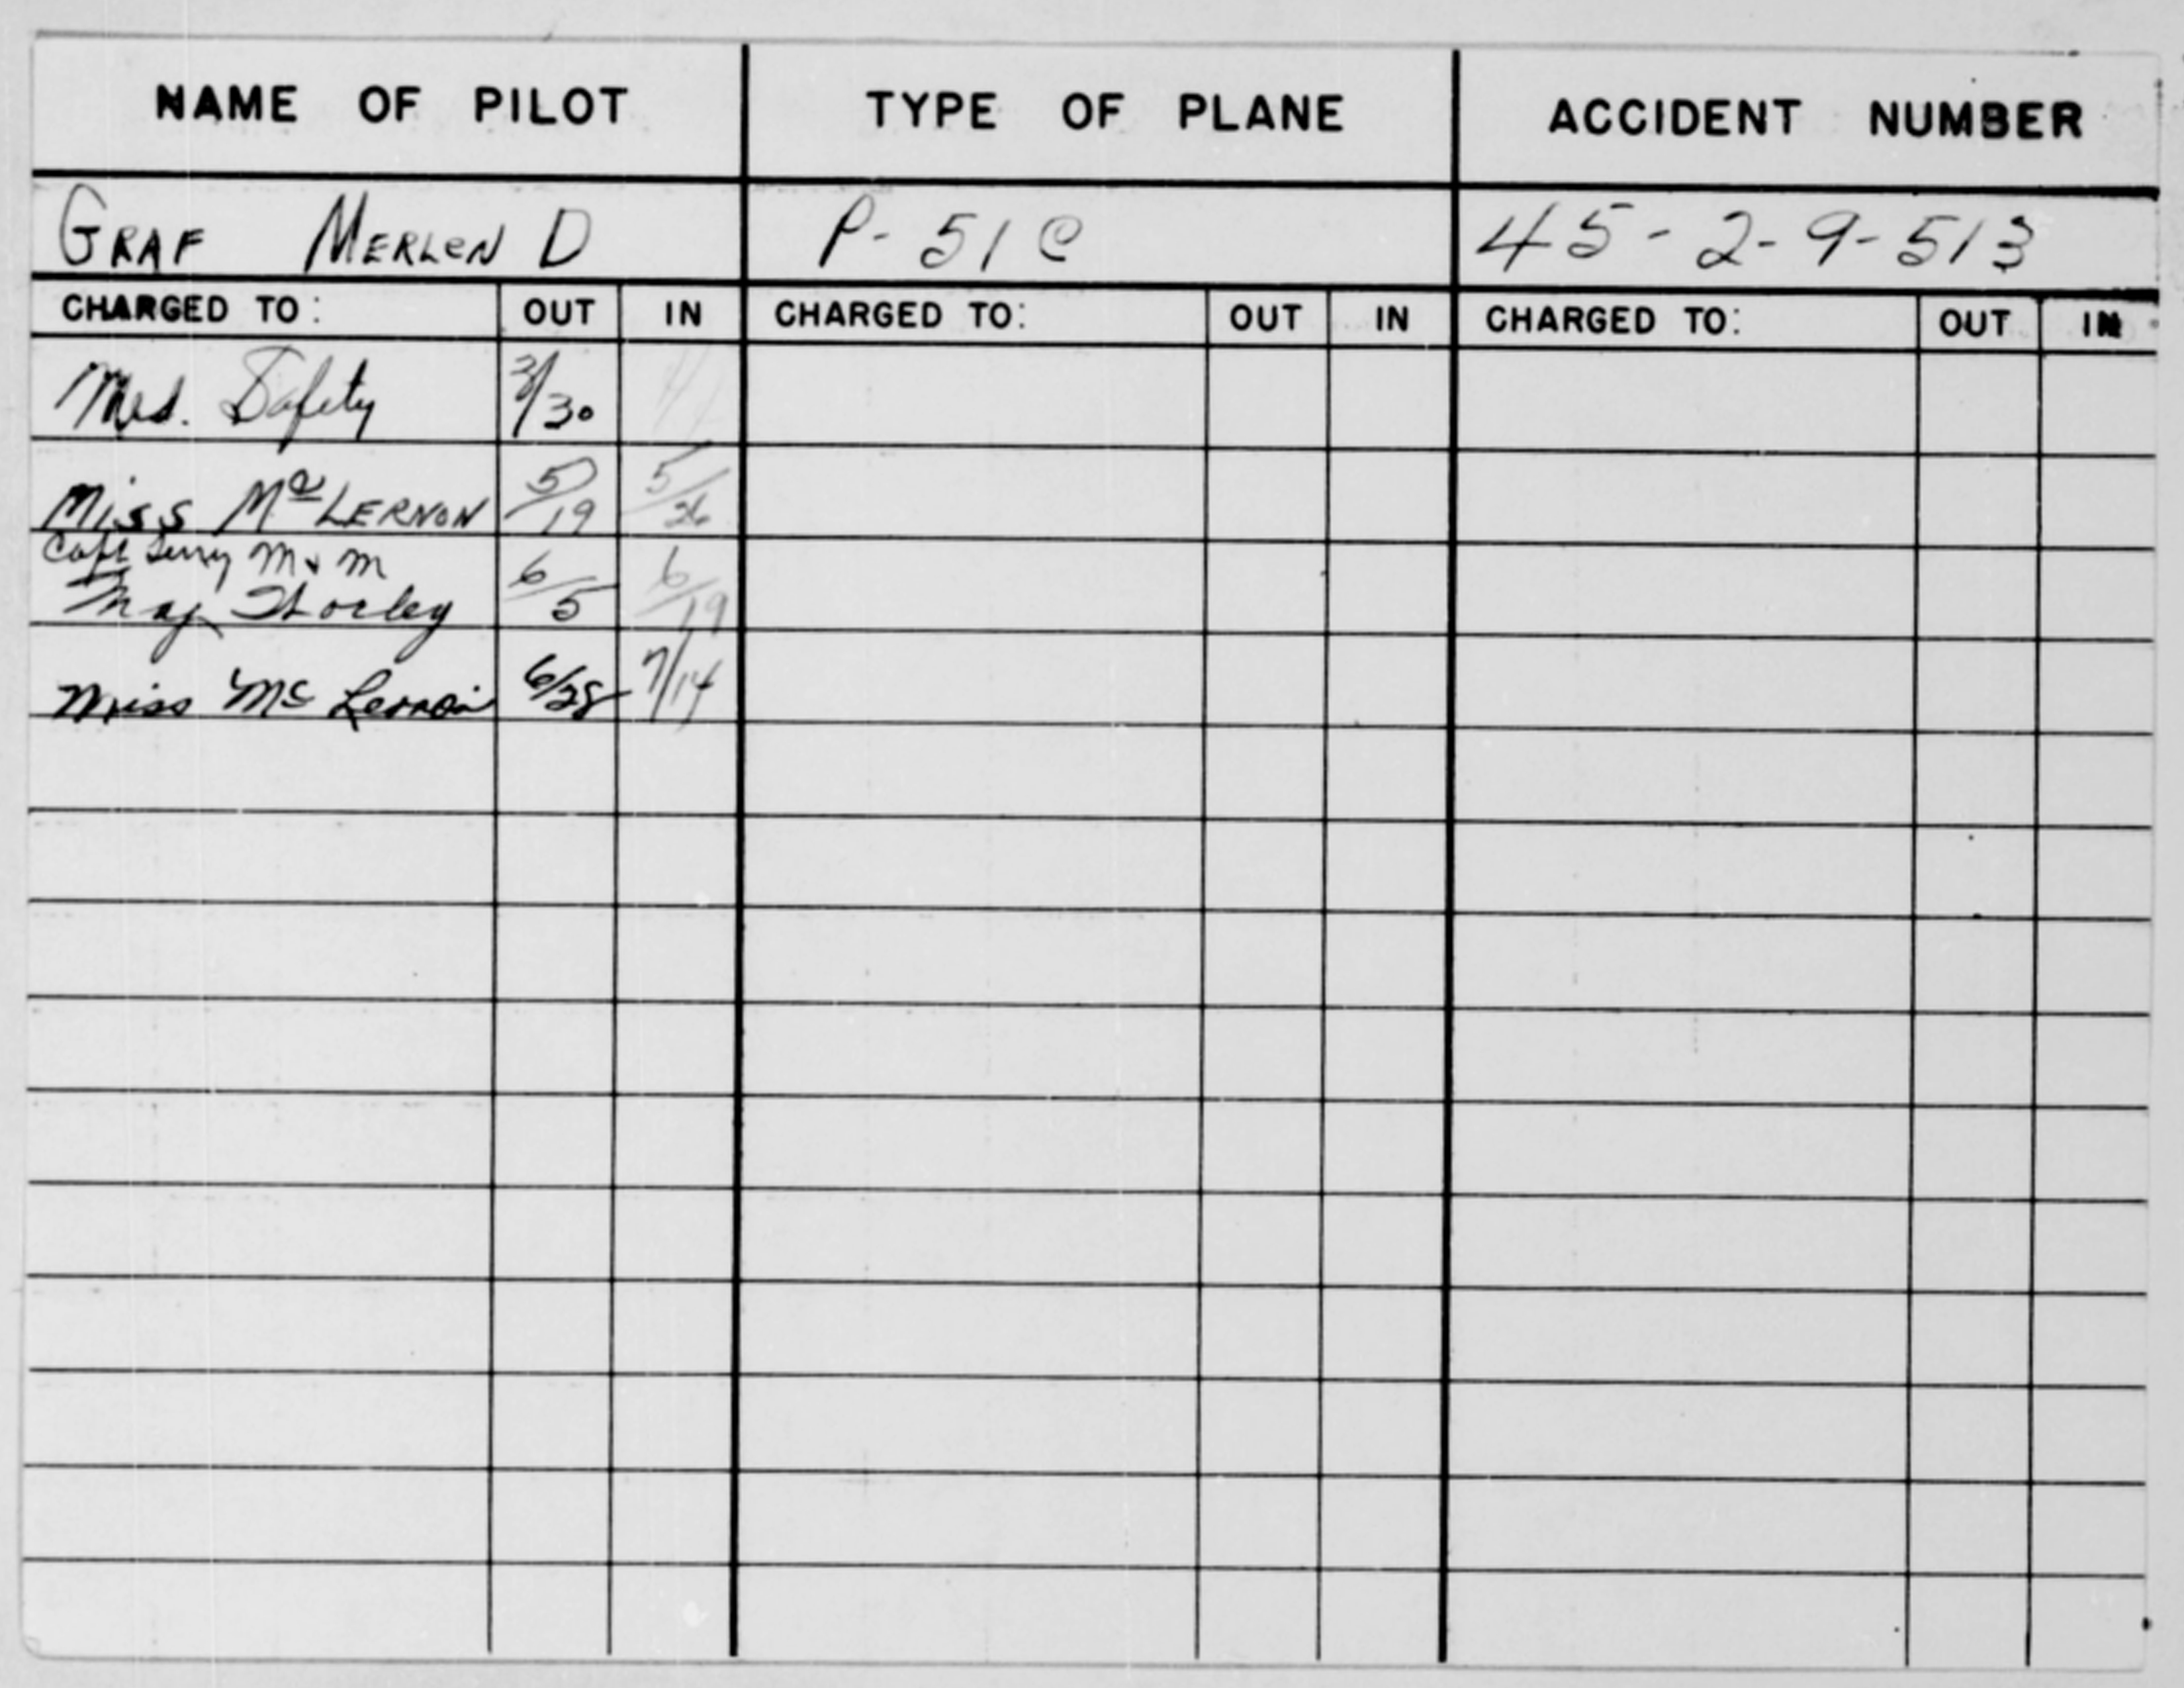 NAME OF PILOT TYPE OF PLANE ACCIDENT NUMBER
GRAF MERLEN D P-51C 45-2-9-513
CHARGED TO: OUT IN CHARGED TO: OUT IN CHARGED TO: OUT IN
Med. Safety 3/30
Miss McLERNON 5/19 5/26
Capt M & M
Maj. Thorley 6/5 6/19
Miss McLernon 6/28 7/14